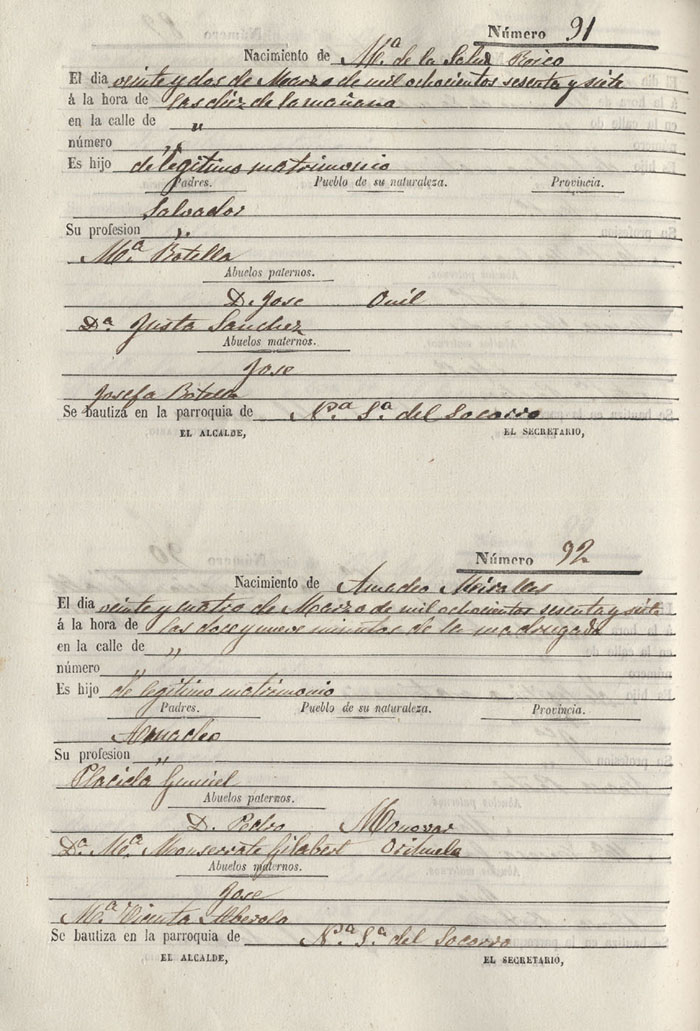 Número 91
Nacimiento de Mª de la Salud Rico
El dia veinte y dos de Marzo de mil ochocientos sesenta y siete
á la hora de las diez de la mañana
en la calle de "
número "
Es hijo de legitimo matrimonio
Padres. Pueblo de su naturaleza. Provincia.
Salvador
Su profesion "
Mª Botella
Abuelos paternos.
D. Jose Onil
Dª Justa Sanchez
Abuelos maternos.
Jose
Josefa Botella
Se bautiza en la parroquia de Nª Sª del Socorro
EL ALCALDE, EL SECRETARIO,
Número 92
Nacimiento de Amadeo Miralles
El dia veinte y cuatro de Marzo de mil ochocientos sesenta y siete
á la hora de las doce y nueve minutos de la madrugada
en la calle de "
número "
Es hijo de legitimo matrimonio
Padres. Pueblo de su naturaleza. Provincia.
Amadeo
Su profesion "
Placida
Abuelos paternos.
D. Pedro Monovar
Dª Mª Monserrate Gilabert Orihuela
Abuelos maternos.
Jose
Mª Vicenta Alberola
Se bautiza en la parroquia de Nª Sª del Socorro
EL ALCALDE, EL SECRETARIO,